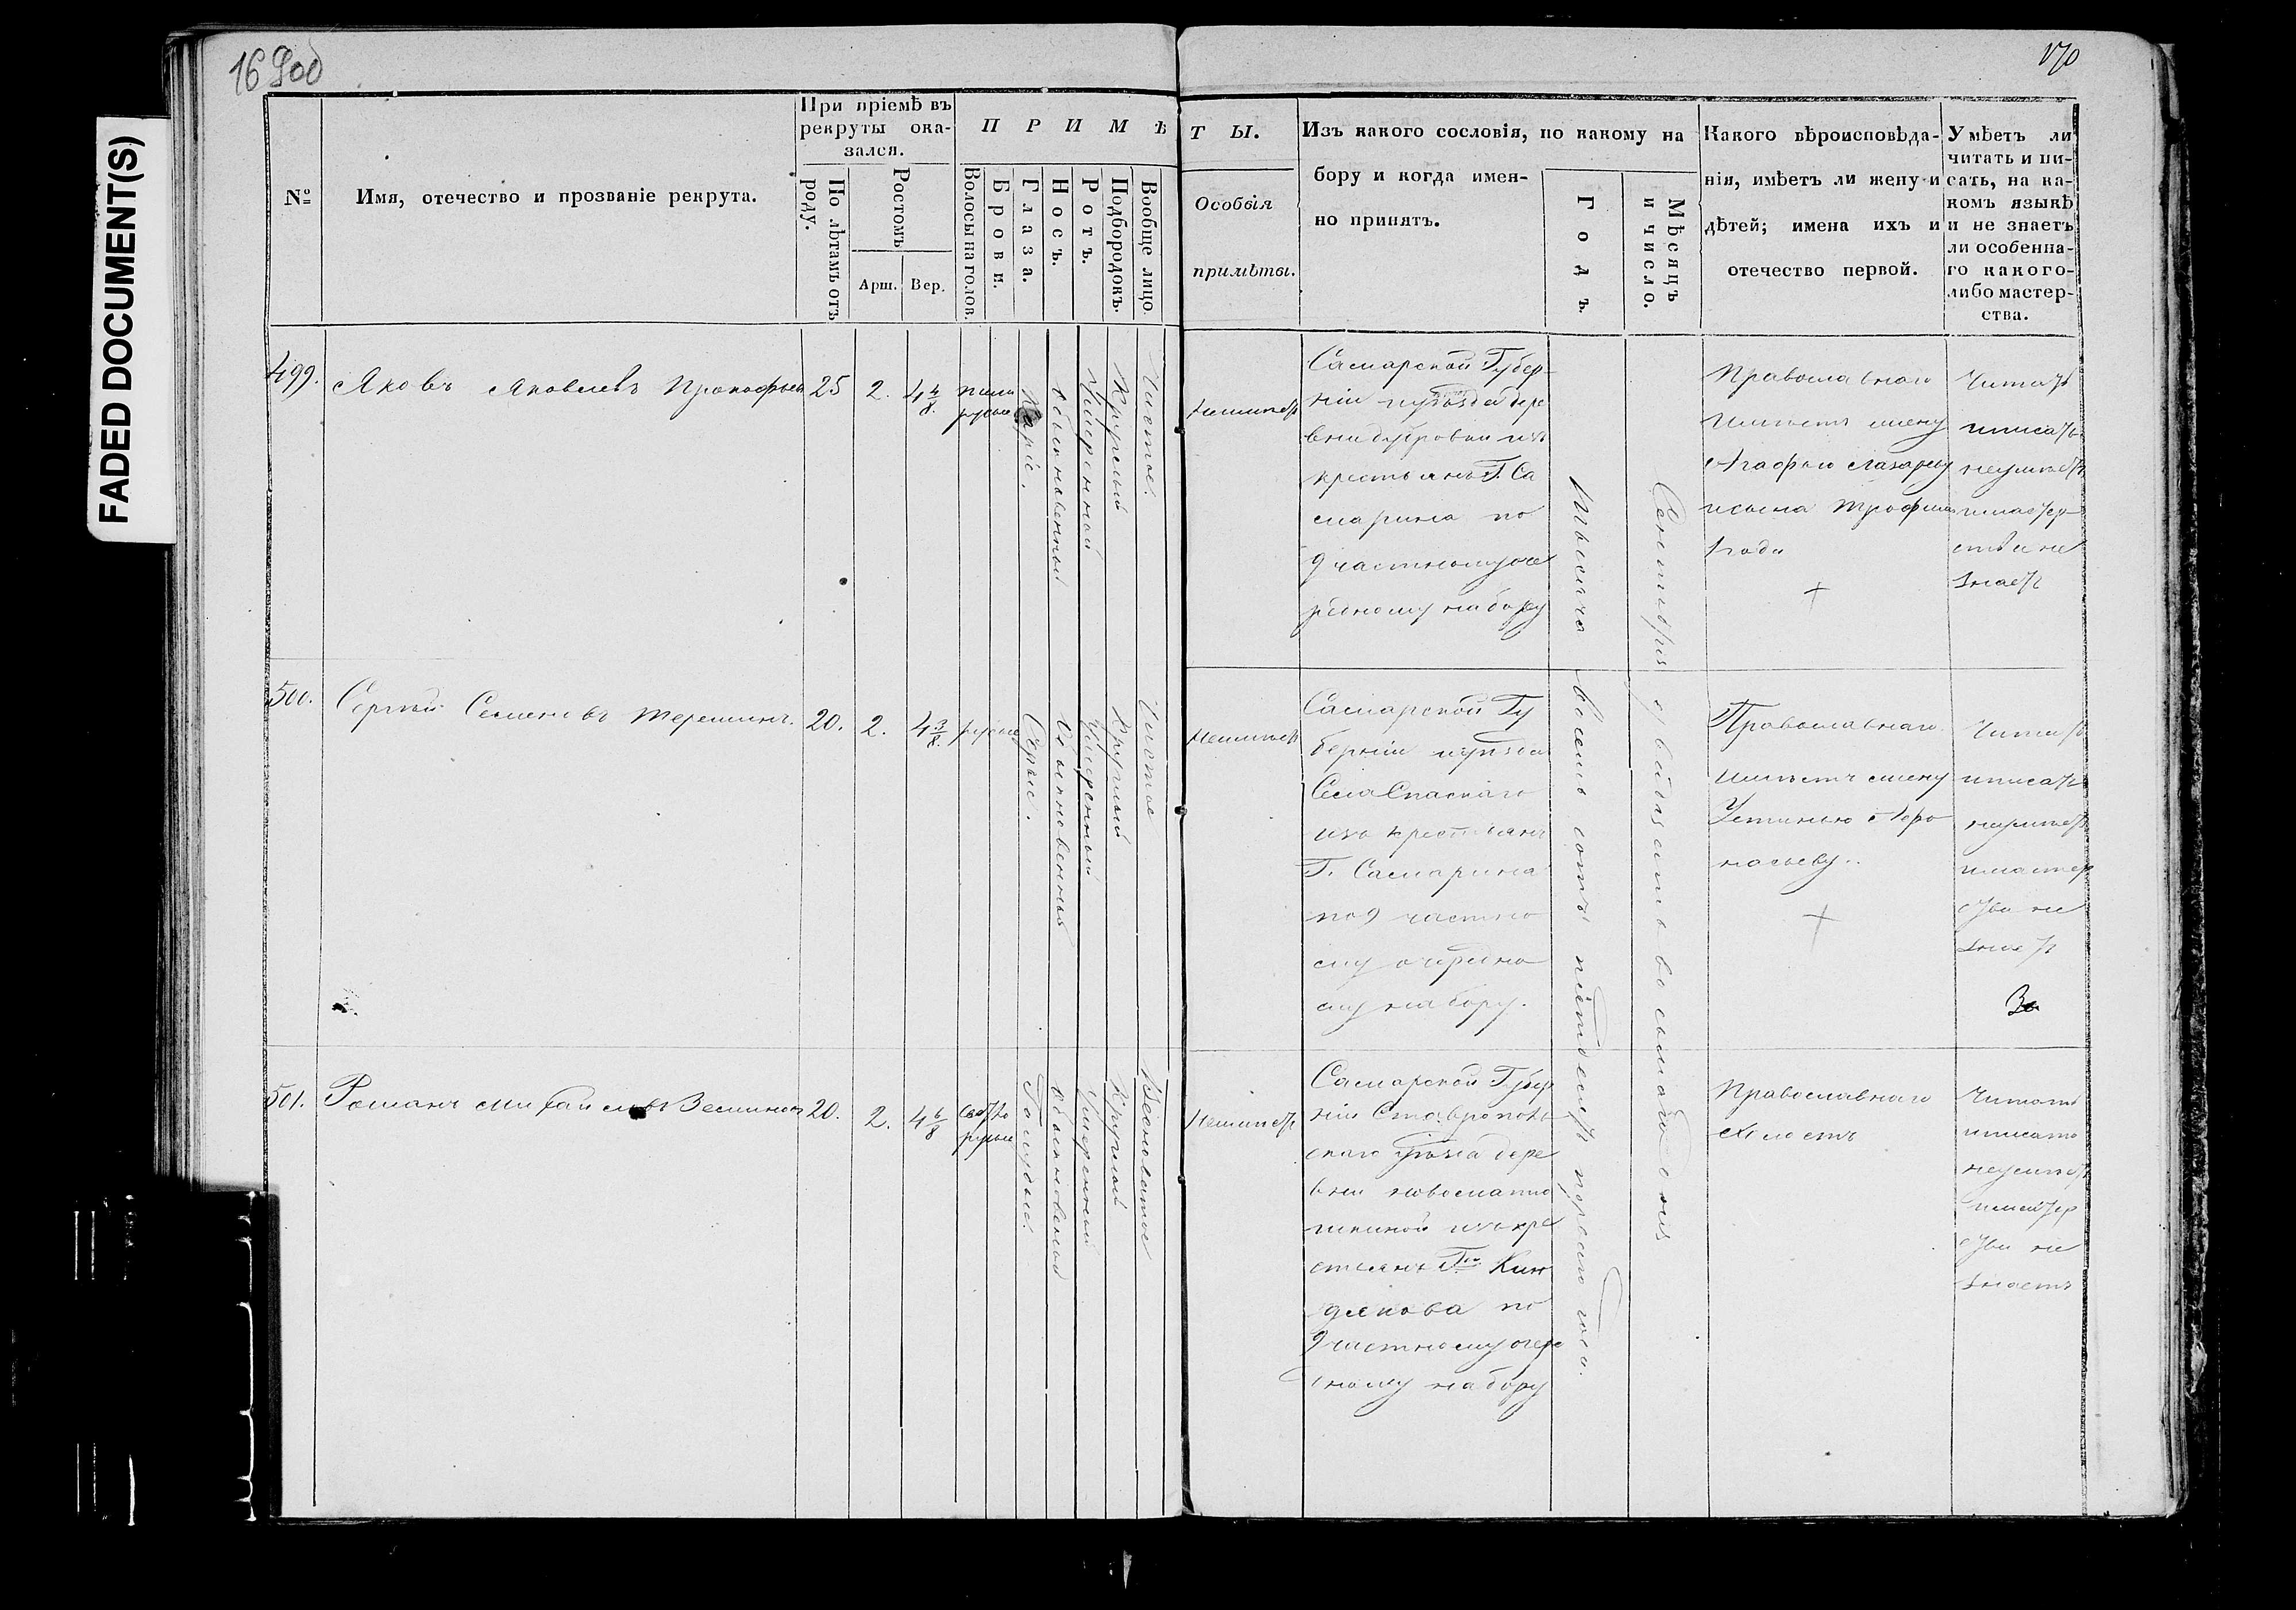 FADED DOCUMENT(S)
170
При пріемѣ въ
рекруты ока-
зался.
П Р И М Ѣ Т Ы.
№
Имя, отечество и прозваніе рекрута.
По лѣтамъ отъ
роду.
Ростомъ
Арш.
Вер.
Волосы на голов.
Брови.
Глаза.
Носъ.
Ротъ.
Подбородокъ.
Вообще лицо.
Особыя
примѣты.
Изъ какого сословія, по какому на
бору и когда имен-
но принятъ.
Годъ.
Мѣсяцъ
и число.
Какого вѣроисповѣда-
нія, имѣетъ ли жену и
дѣтей; имена ихъ и
отечество первой.
Умѣетъ ли
читать и пи-
сать, на ка-
комъ языкѣ
и не знаетъ
ли особенна-
го какого-
либо мастер-
ства.
499.
Яковъ Яковлевъ Прокофьев
25
2.
4 4/8.
русые
Каріе.
обыкновенный
Умеренной
Круглый
Чистое.
Неимѣетъ
Самарской Губер
ніи
деревни Дубровки изъ
крестьянъ Г. Са
марина по
9 частному оче
редному набору
Тысяча восемь сотъ пятьдесятъ перваго года.
Сентября двадцать восьмаго дня
Православнаго
имѣетъ жену
Агафью Лазареву
исына Трофима
1 года
Читать
иписать
неумѣетъ
имастер
ства не
знаетъ
500.
Сергѣй Семеновъ Терешинъ.
20.
2.
4 3/8.
русые
Серые.
Обыкновенный
Умеренный
Круглый
Чистое
Неимѣетъ
Самарской Гу
берніи
Села Спаскаго
изъ крестьянъ
Г. Самарина
по 9 частно
му очередно
му набору.
Православнаго
имѣетъ жену
Устинью
Читать
иписать
неумѣетъ
имастер
ства не
знаетъ
501.
Романъ Михайловъ Земинъ
20.
2.
4 6/8
светло
русые
Голубые.
обыкновеной
Умеренный
Круглой
Весноватое
Неимѣетъ
Самарской Губер
ніи Ставрополь
скаго Уѣзда дере
вни
изъ кре
стьянъ
по
9 частному очере
дному набору
Православнаго
Холостъ
Читать
иписать
неумѣетъ
имастер
ства не
знаетъ